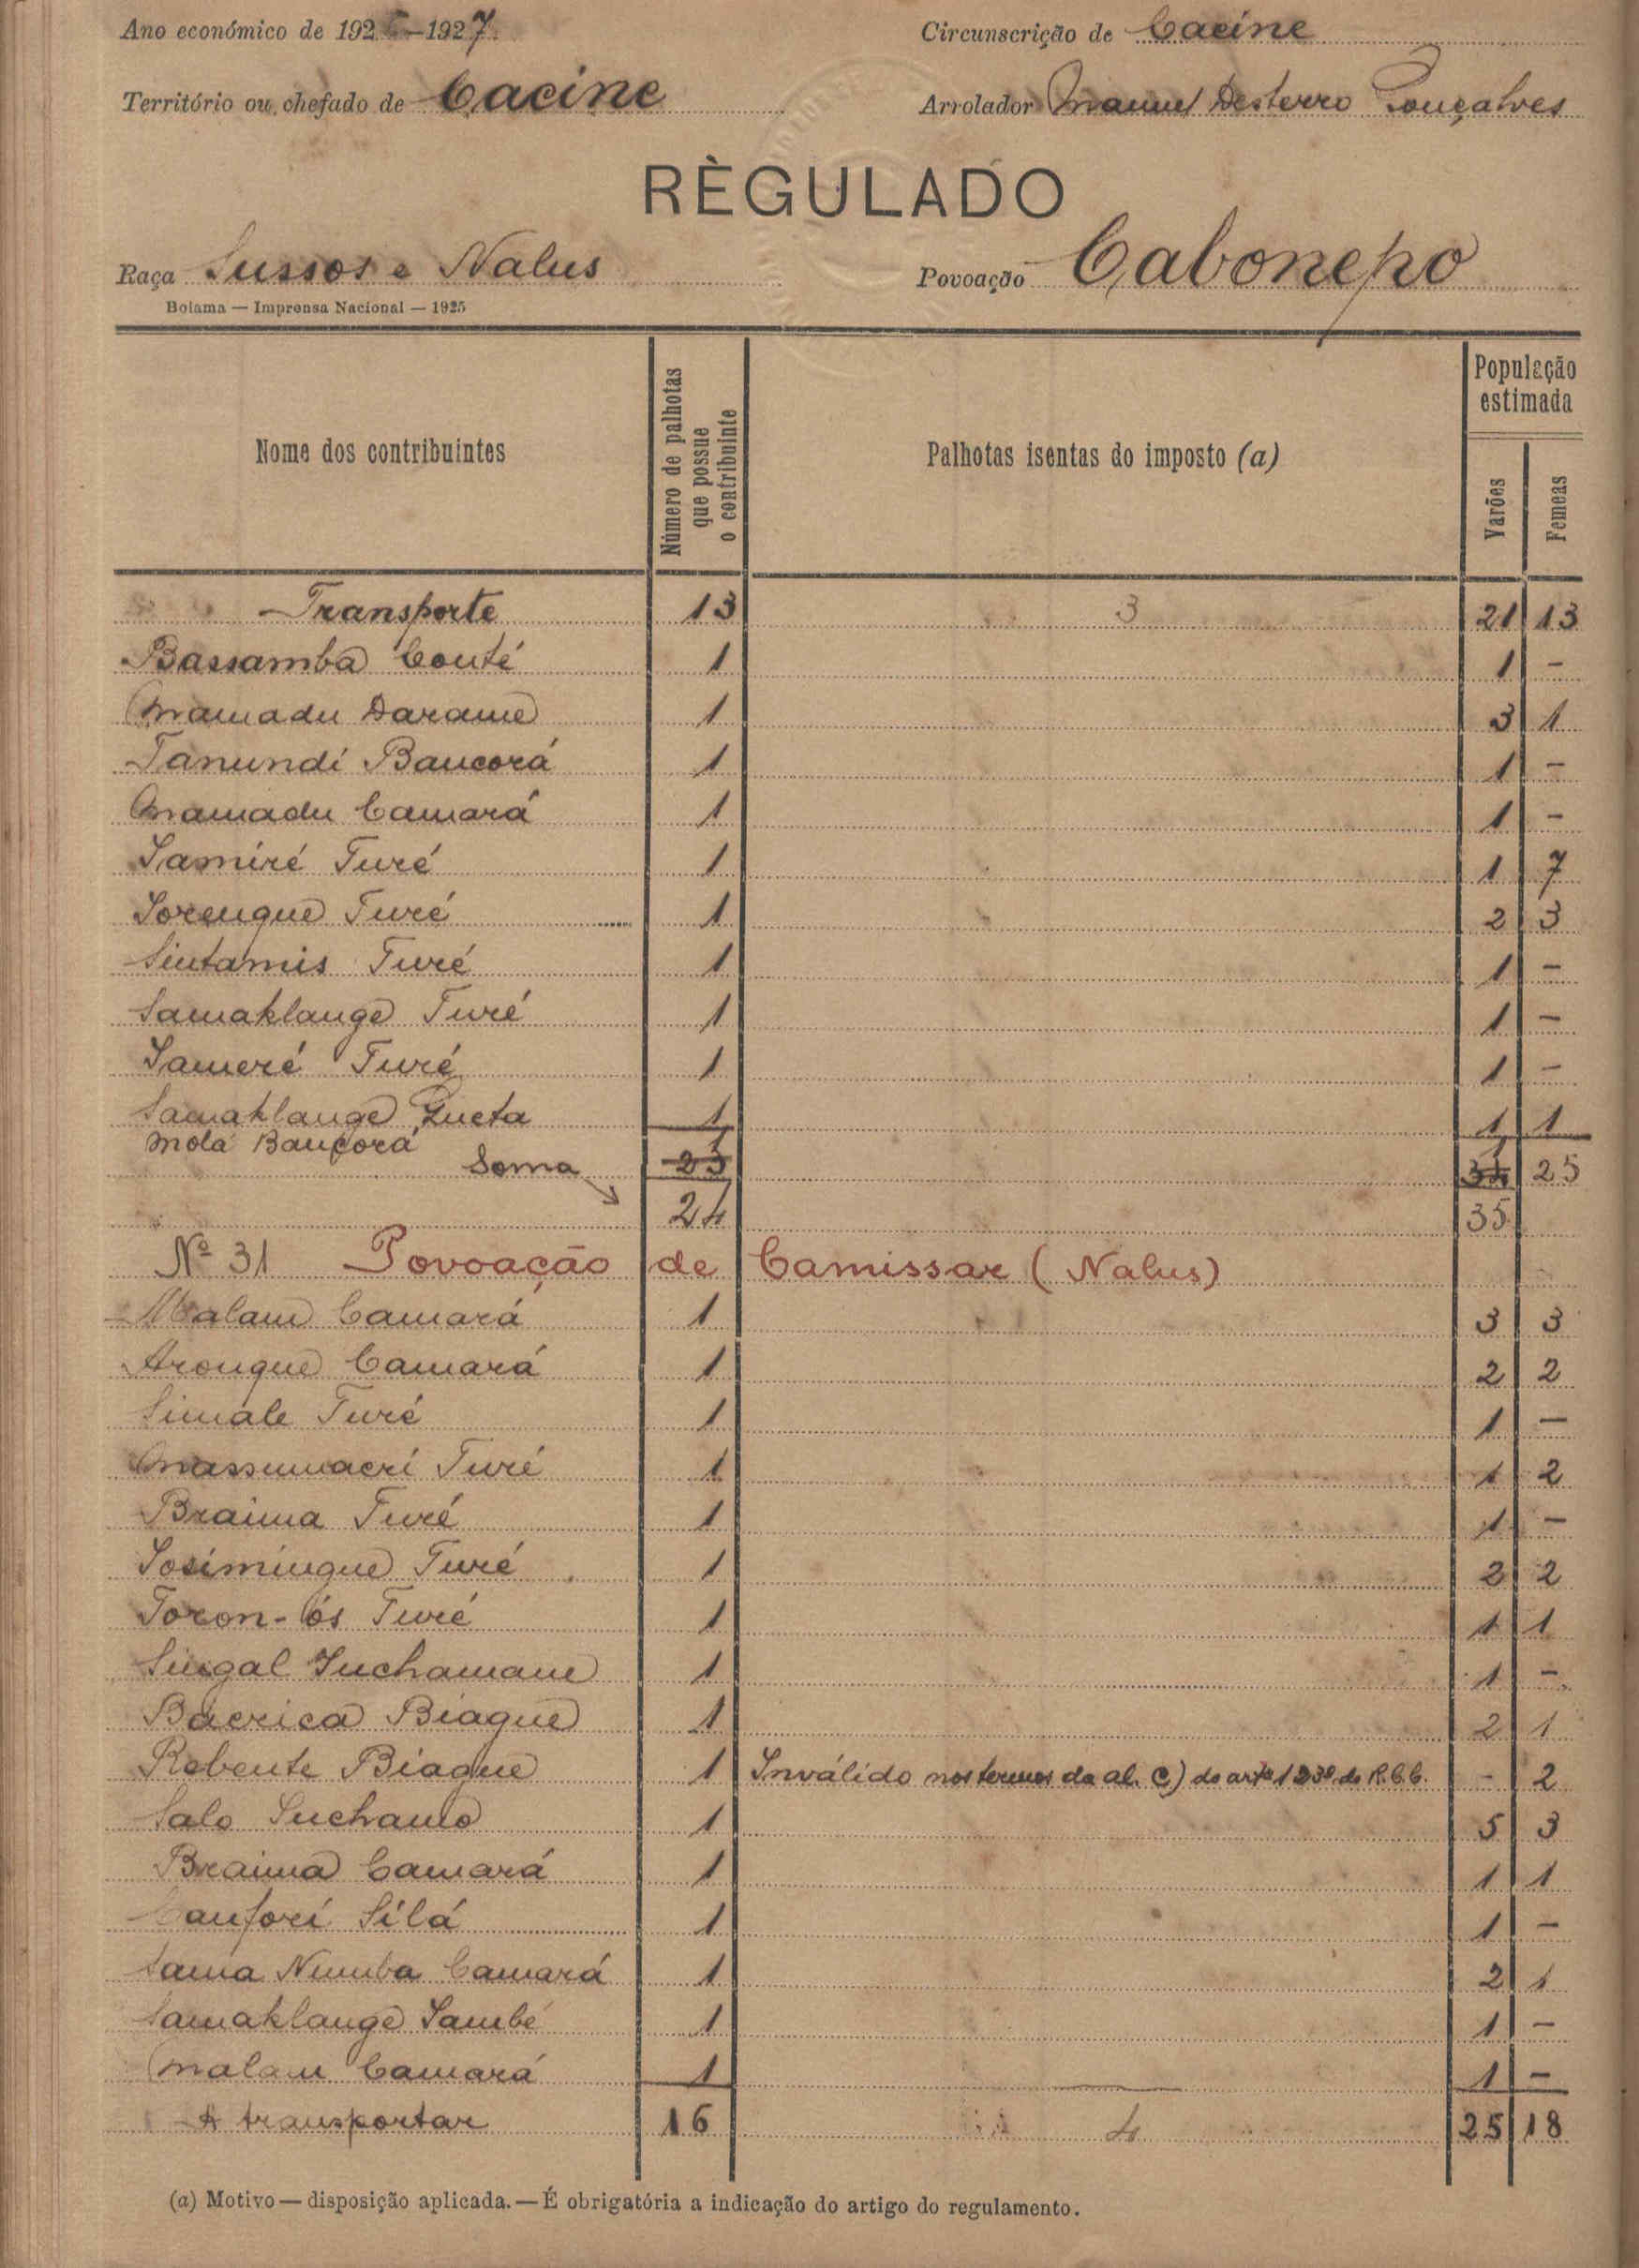 Ano económico de 192 -1927. Circunscrição de Cacine
Território ou chefado de Cacine Arrolador Manuel Desterro Gonçalves
RÈGULADO
Raça Sussos e Nalus Povoação Cabonepo
Bolama — Imprensa Nacional — 1925
Nome dos contribuintes Número de palhotas que possue o contribuinte Palhotas isentas do imposto (a) População estimada Varões Femeas
Transporte 13 3 21 13
Bassamba Conté 1 1 -
Mamadu Darame 1 3 1
Tanundi Baucorá 1 1 -
Mamadu Camará 1 1 -
Samiré Turé 1 1 7
Sorengue Turé 1 2 3
Sintamis Turé 1 1 -
Samaklange Turé 1 1 -
Sameré Turé 1 1 -
Samaklange Queta 1 1 1
Mola Baucora 1 1
Soma 23 34 25
24 35
Nº 31 Povoação de Camissar (Nalus)
Malam Camará 1 3 3
Arongue Camará 1 2 2
Simale Turé 1 1 -
Massumacri Turé 1 1 2
Braima Turé 1 1 -
Sosimingue Turé 1 2 2
Toron-lós Turé 1 1 1
Singal Suchamane 1 1 -
Bacrica Biague 1 2 1
Rebente Biague 1 Inválido nos termos da al. c) do artº 123º do R.C.C. - 2
Salo Suchamo 1 5 3
Braima Camará 1 1 1
Canfori Silá 1 1 -
Sama Numba Camará 1 2 1
Samaklange Sambé 1 1 -
Malam Camará 1 1 -
A transportar 16 4 25 18
(a) Motivo — disposição aplicada. — É obrigatória a indicação do artigo do regulamento.